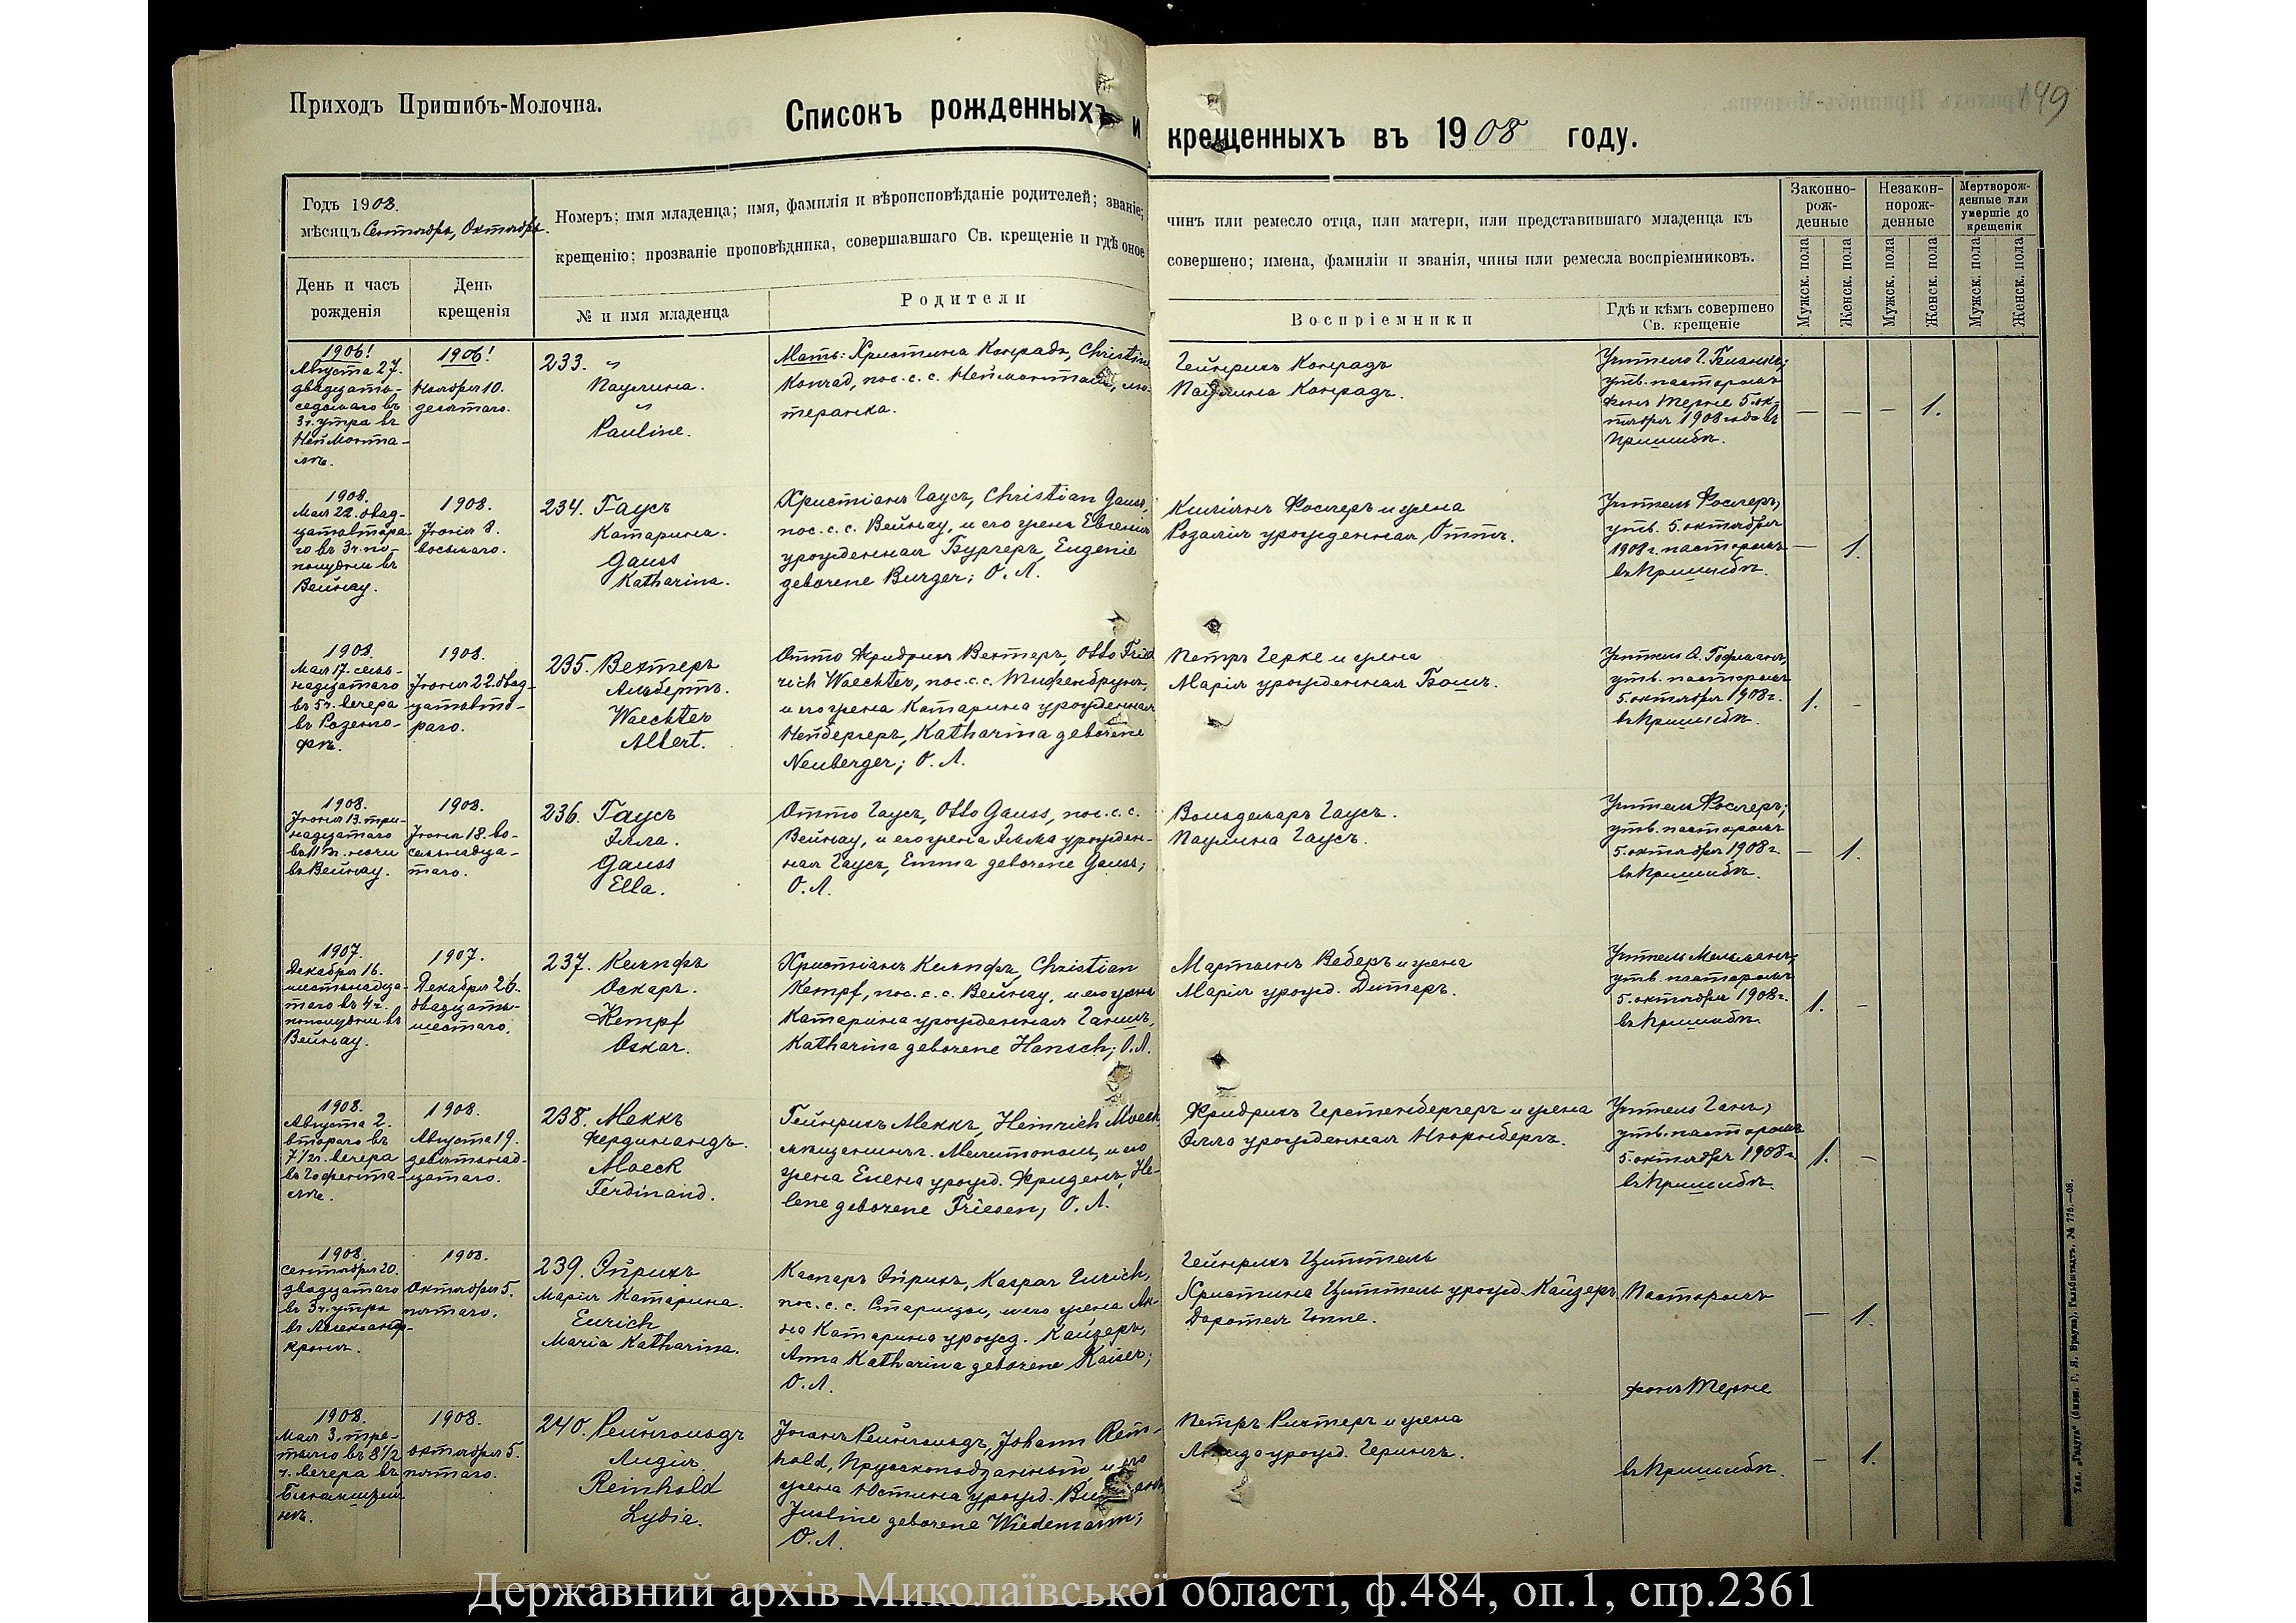 Приходъ Пришибъ-Молочна.
149
Списокъ рожденныхъ и крещенныхъ въ 1908 году.
Годъ 1908.
мѣсяцъ Сентябрь, Октябрь.
Номеръ; имя младенца; имя, фамилія и вѣроисповѣданіе родителей; званіе;
крещенію; прозваніе проповѣдника, совершавшаго Св. крещеніе и гдѣ оное
чинъ или ремесло отца, или матери, или представившаго младенца къ
совершено; имена, фамиліи и званія, чины или ремесла воспріемниковъ.
Законно-
рож-
денные
Незакон-
норож-
денные
Мертворож-
денные или
умершіе до
крещенія
День и часъ
рожденія
День
крещенія
№ и имя младенца
Родители
Воспріемники
Гдѣ и кѣмъ совершено
Св. крещеніе
Мужск. пола
Женск. пола
Мужск. пола
Женск. пола
Мужск. пола
Женск. пола
1906!
Августа 27.
двадцать-
седьмаго въ
3 ч. утра въ
Неймонта-
лѣ.
1906!
Ноября 10.
десятаго.
233. "
Паулина.
"
Pauline.
Мать: Христина Конрадъ, Christine
Konrad, пос. с. с. Нейманталь, лю-
теранка.
Гейнрихъ Конрадъ
Паулина Конрадъ.
Учитель Г. Бланкъ;
утв. пасторомъ
фонъ Терне 5. ок-
тября 1908 года въ
Пришибѣ.
— — — 1.
1908.
Мая 22. двад-
цатьвтора-
го въ 3 ч. по-
полудни въ
Вейнау.
1908.
Іюня 8.
восьмаго.
234. Гаусъ
Катарина.
Gauss
Katharina.
Христіанъ Гаусъ, Christian Gauss,
пос. с. с. Вейнау, и его жена Евгенія
урожденная Бургеръ, Eugenie
geborene Burger; О. Л.
Киліанъ Фослеръ и жена
Розалія урожденная Оттъ.
Учитель Фослеръ,
утв. 5. октября
1908 г. пасторомъ
въ Пришибѣ.
— 1.
1908.
Мая 17. семь-
надцатаго
въ 5 ч. вечера
въ Розенго-
фѣ.
1908.
Іюня 22. двад-
цатьвто-
раго.
235. Вехтеръ
Альбертъ.
Waechter
Albert.
Отто Фридрихъ Вехтеръ, Otto Fried
rich Waechter, пос. с. с. Тифенбрунъ,
и его жена Катарина урожденная
Нейбергеръ, Katharina geborene
Neuberger; О. Л.
Петръ Герке и жена
Марія урожденная Бошъ.
Учитель А. Гофманъ,
утв. пасторомъ
5. октября 1908 г.
въ Пришибѣ.
1. -
1908.
Іюня 13. три-
надцатаго
въ 11 ч. ночи
въ Вейнау.
1908.
Іюня 18. во-
семьнадца-
таго.
236. Гаусъ
Элла.
Gauss
Ella.
Отто Гаусъ, Otto Gauss, пос. с. с.
Вейнау, и его жена Эмма урожден-
ная Гаусъ, Emma geborene Gauss;
О. Л.
Вольдемаръ Гаусъ.
Паулина Гаусъ.
Учитель Фослеръ;
утв. пасторомъ
5. октября 1908 г.
въ Пришибѣ.
— 1.
1907.
Декабря 16.
шестьнадца-
таго въ 4 ч.
пополудни въ
Вейнау.
1907.
Декабря 26.
двадцать-
шестаго.
237. Кемпфъ
Оскаръ.
Kempf
Oskar.
Христіанъ Кемпфъ, Christian
Kempf, пос. с. с. Вейнау, и его жена
Катарина урожденная Ганшъ,
Katharina geborene Hansch; О. Л.
Мартынъ Веберъ и жена
Марія урожд. Дитеръ.
Учитель Мельманъ;
утв. пасторомъ
5. октября 1908 г.
въ Пришибѣ.
1. -
1908.
Августа 2.
втораго въ
7½ ч. вечера
въ Гофента-
лѣ.
1908.
Августа 19.
девятьнад-
цатаго.
238. Меккъ
Фердинандъ.
Moeck
Ferdinand.
Гейнрихъ Меккъ, Heinrich Moeck
мѣщанинъ г. Мелитополь, и его
жена Елена урожд. Фризенъ, He-
lene geborene Friesen; О. Л.
Фридрихъ Герстенбергеръ и жена
Элла урожденная Нюрнбергъ.
Учитель Ганъ,
утв. пасторомъ
5. октября 1908 г.
въ Пришибѣ.
1. -
1908.
Сентября 20.
двадцатаго
въ 3 ч. утра
въ Александр-
кронъ.
1908.
Октября 5.
пятаго.
239. Эйрихъ
Марія Катарина.
Eurich
Maria Katharina.
Каспаръ Эйрихъ, Kaspar Eurich,
пос. с. с. Старицы, и его жена Ан-
на Катарина урожд. Кайзеръ,
Anna Katharina geborene Kaiser;
О. Л.
Гейнрихъ Циттель
Христина Циттель урожд. Кайзеръ.
Доротея Гоппе.
Пасторомъ
— 1.
фонъ Терне
1908.
Мая 3. тре-
тьяго въ 8½
ч. вечера въ
1908.
октября 5.
пятаго.
240. Рейнгольдъ
Лидія.
Reinhold
Lydia.
Іоганъ Рейнгольдъ, Johann Rein-
hold, Прусскоподданный и его
жена Юстина урожд.
Justine geborene Wiedemann;
О. Л.
Петръ Рихтеръ и жена
урожд. Герингъ.
въ Пришибѣ.
- 1.
Тип. „Радуга" (бывш. Г. Я. Брауна), Гальбштадтъ. № 776.—08.
Державний архів Миколаївської області, ф.484, оп.1, спр.2361